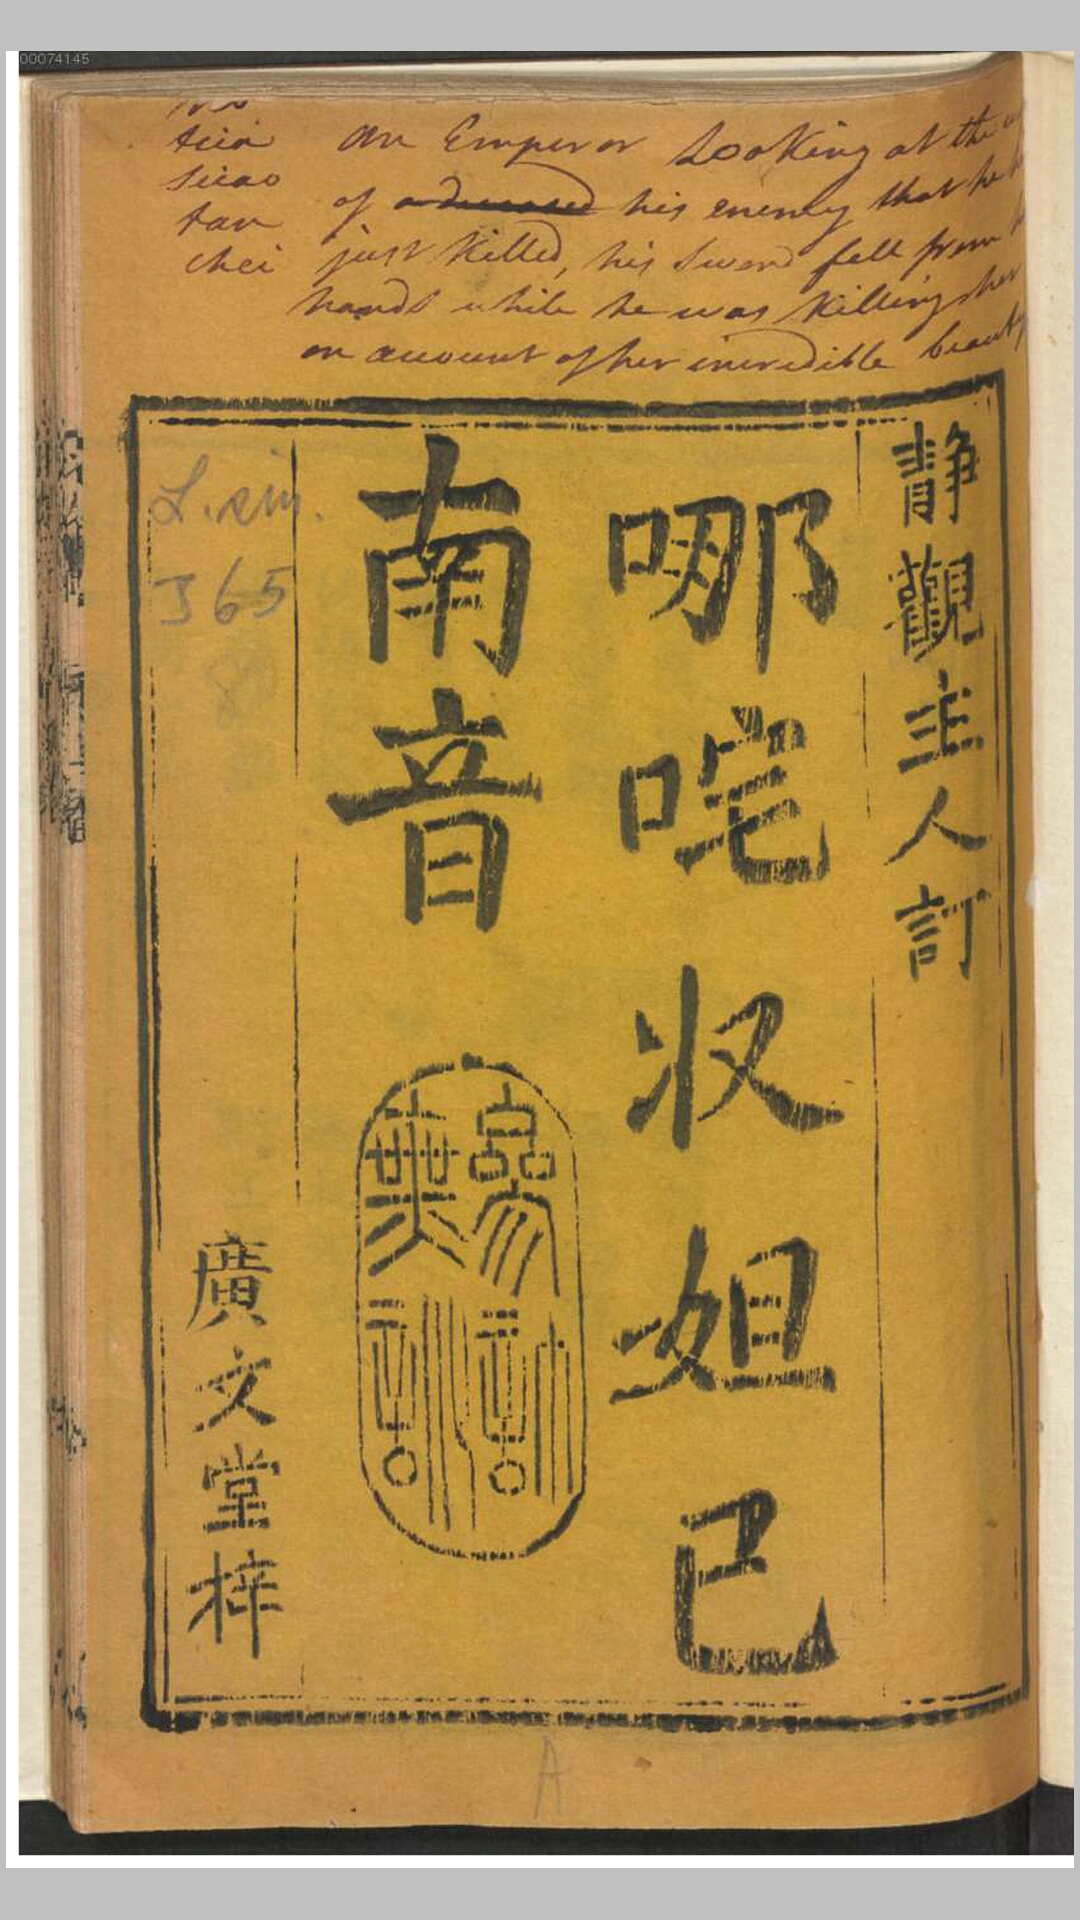 00074145
tsiа
siao
tan
chei
an Emperor Looking at the
of a deceased his enemy that he
just killed, his sword fell from
hands while he was killing her
on account of her incredible beauty
L. sin.
365
靜觀主人訂
哪咤收妲己
南音
廣文堂梓
A